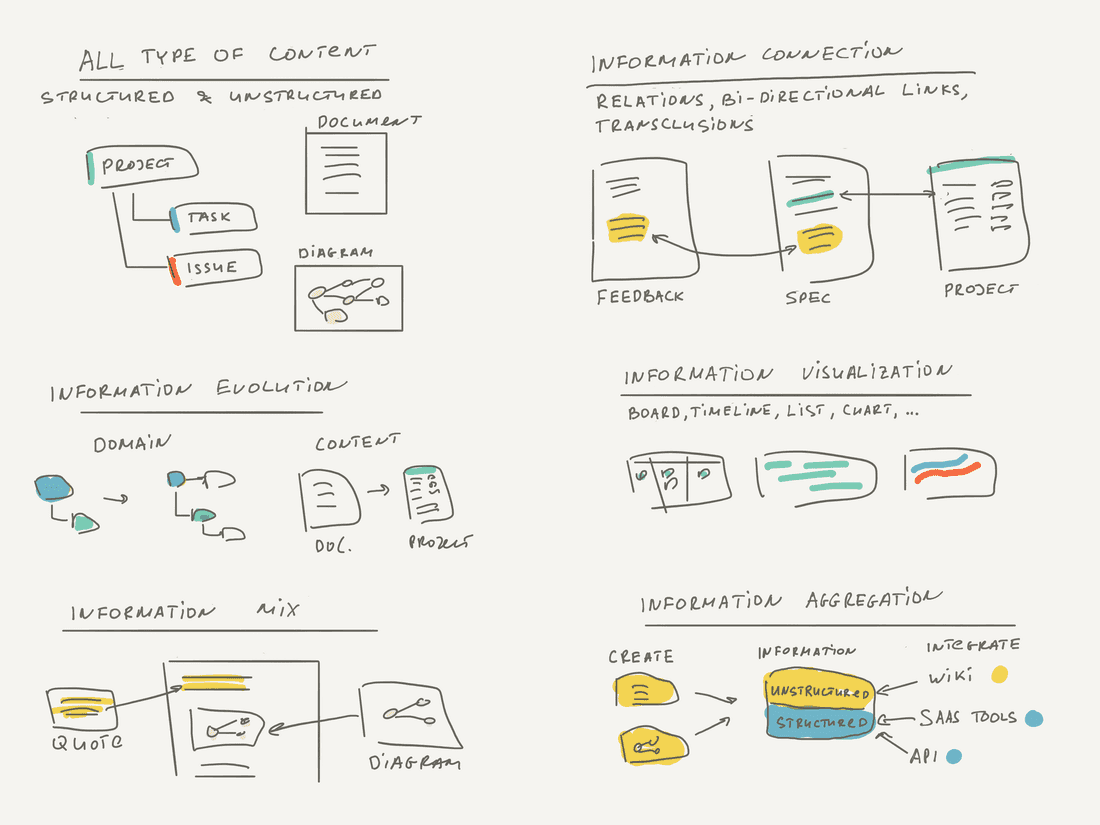 ALL TYPE OF CONTENT
STRUCTURED & UNSTRUCTURED
DOCUMENT
PROJECT
TASK
ISSUE
DIAGRAM
INFORMATION CONNECTION
RELATIONS, BI-DIRECTIONAL LINKS,
TRANSCLUSIONS
FEEDBACK
SPEC
PROJECT
INFORMATION EVOLUTION
DOMAIN
CONTENT
DOC.
PROJECT
INFORMATION VISUALIZATION
BOARD, TIMELINE, LIST, CHART, ...
INFORMATION MIX
QUOTE
DIAGRAM
INFORMATION AGGREGATION
CREATE
INFORMATION
INTEGRATE
UNSTRUCTURED
STRUCTURED
WIKI
SAAS TOOLS
API